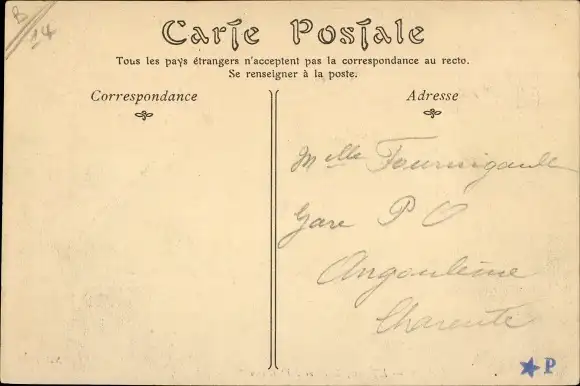 B
14
Carte Postale
Tous les pays étrangers n'acceptent pas la correspondance au recto.
Se renseigner à la poste.
Correspondance
Adresse
Mlle Fournigault
Gare P O
Angoulême
Charente
P